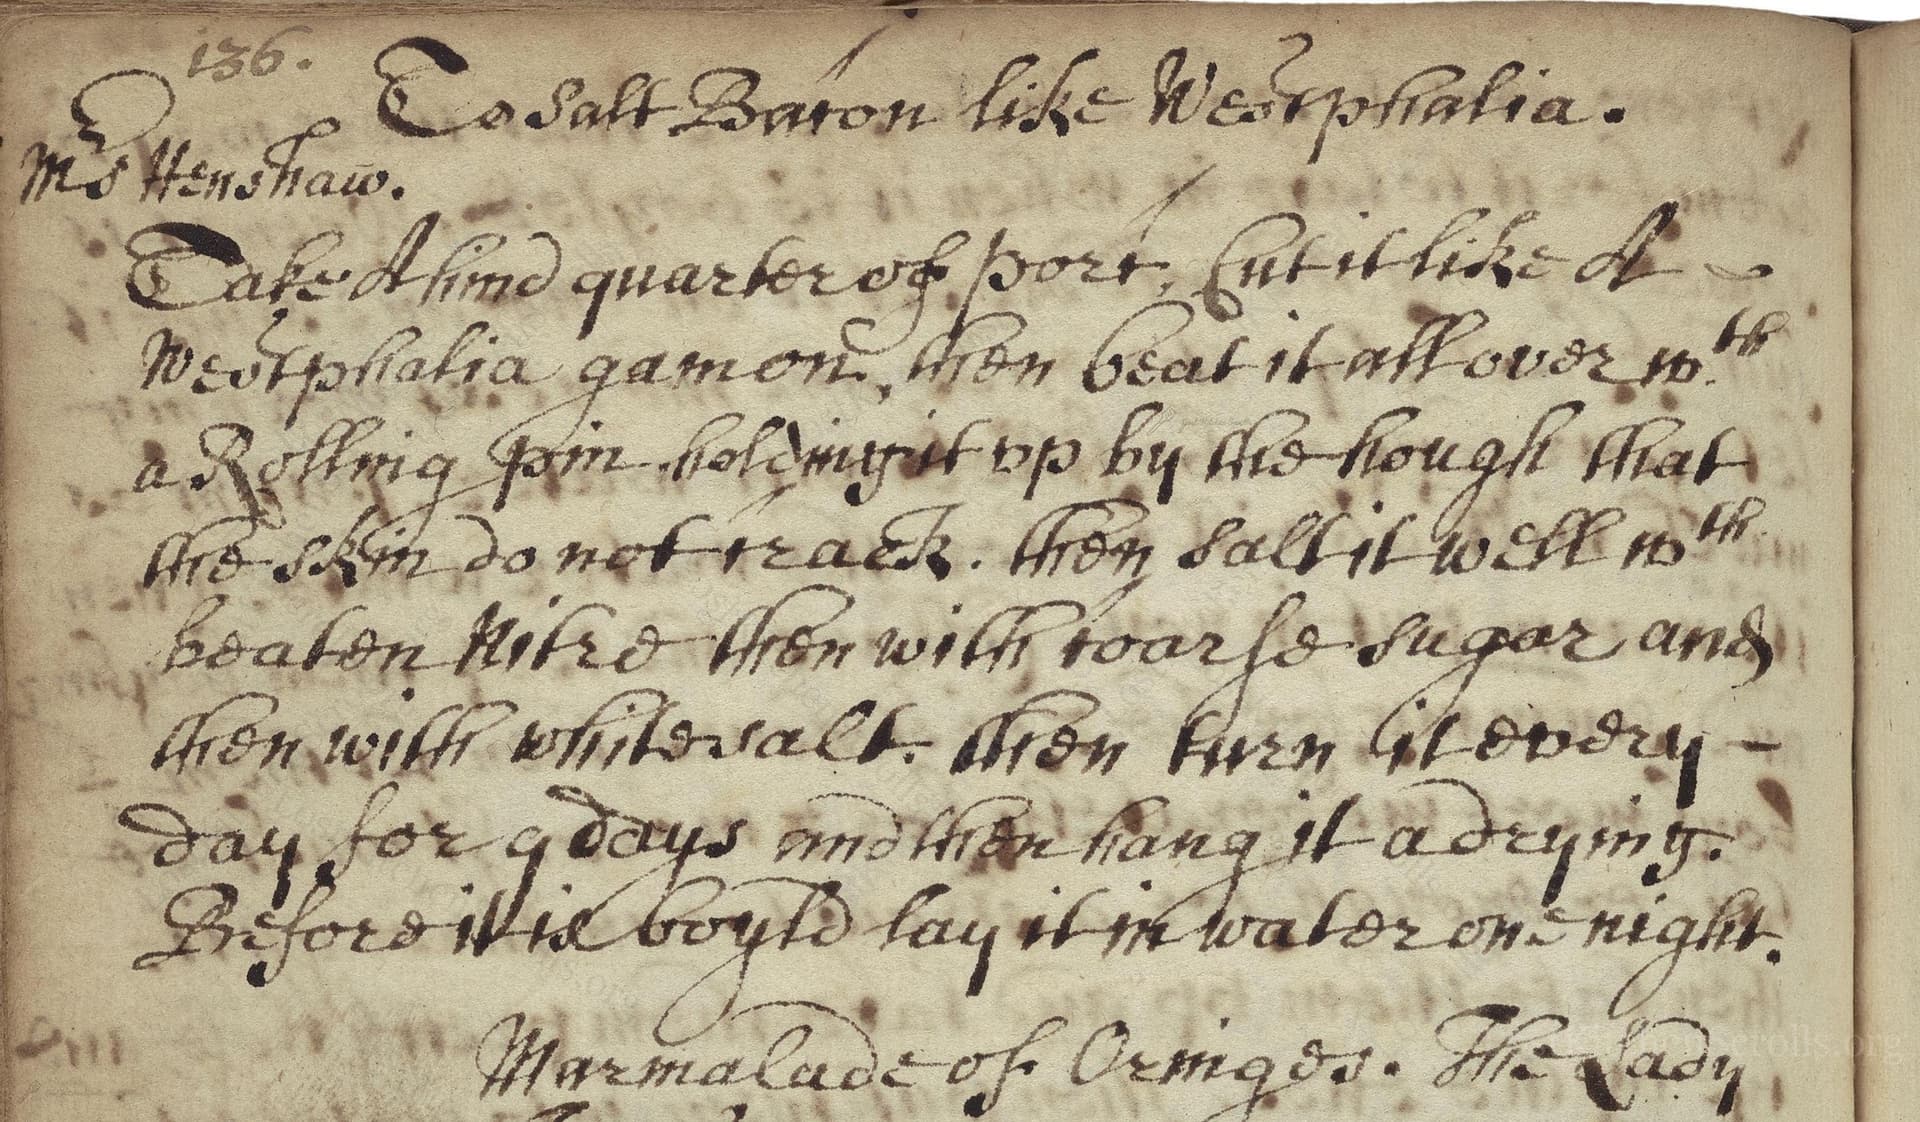 136.
To Salt Bacon like Westphalia.
Mrs Henshaw.
Take A hind quarter of porc, Cut it like A
Westphalia gamon, then beat it all over wth
a Rolling pin holding it vp by the hough that
the skin do not crack. then salt it well wth
beaten Nitre then with coarse sugar and
then with white salt. then turn it every -
day for 9 days and then hang it a drying.
Before it is boyld lay it in water one night.
Marmalade of Oringes. The Lady